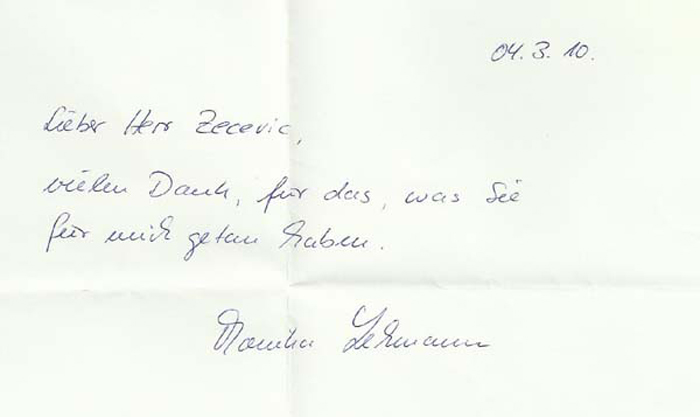 04.3.10.
Lieber Herr Zecevic,
vielen Dank, für das, was Sie
für mich getan haben.
Monika Lehmann